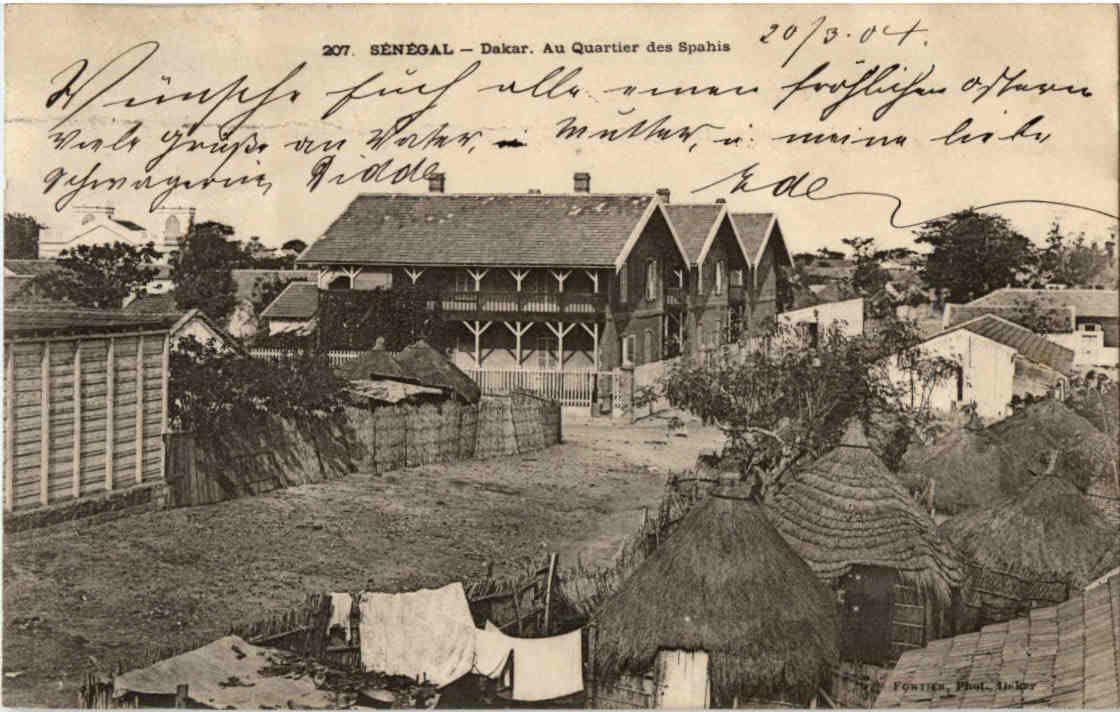 207. SÉNÉGAL — Dakar. Au Quartier des Spahis
20/3.04.
Wünsche Euch alle einen fröhlichen Ostern
Viele Grüße an Vater, u Mutter, u. meine liebe
Schwägerin, Didde
Ede
FORTIER, Phot., Dakar